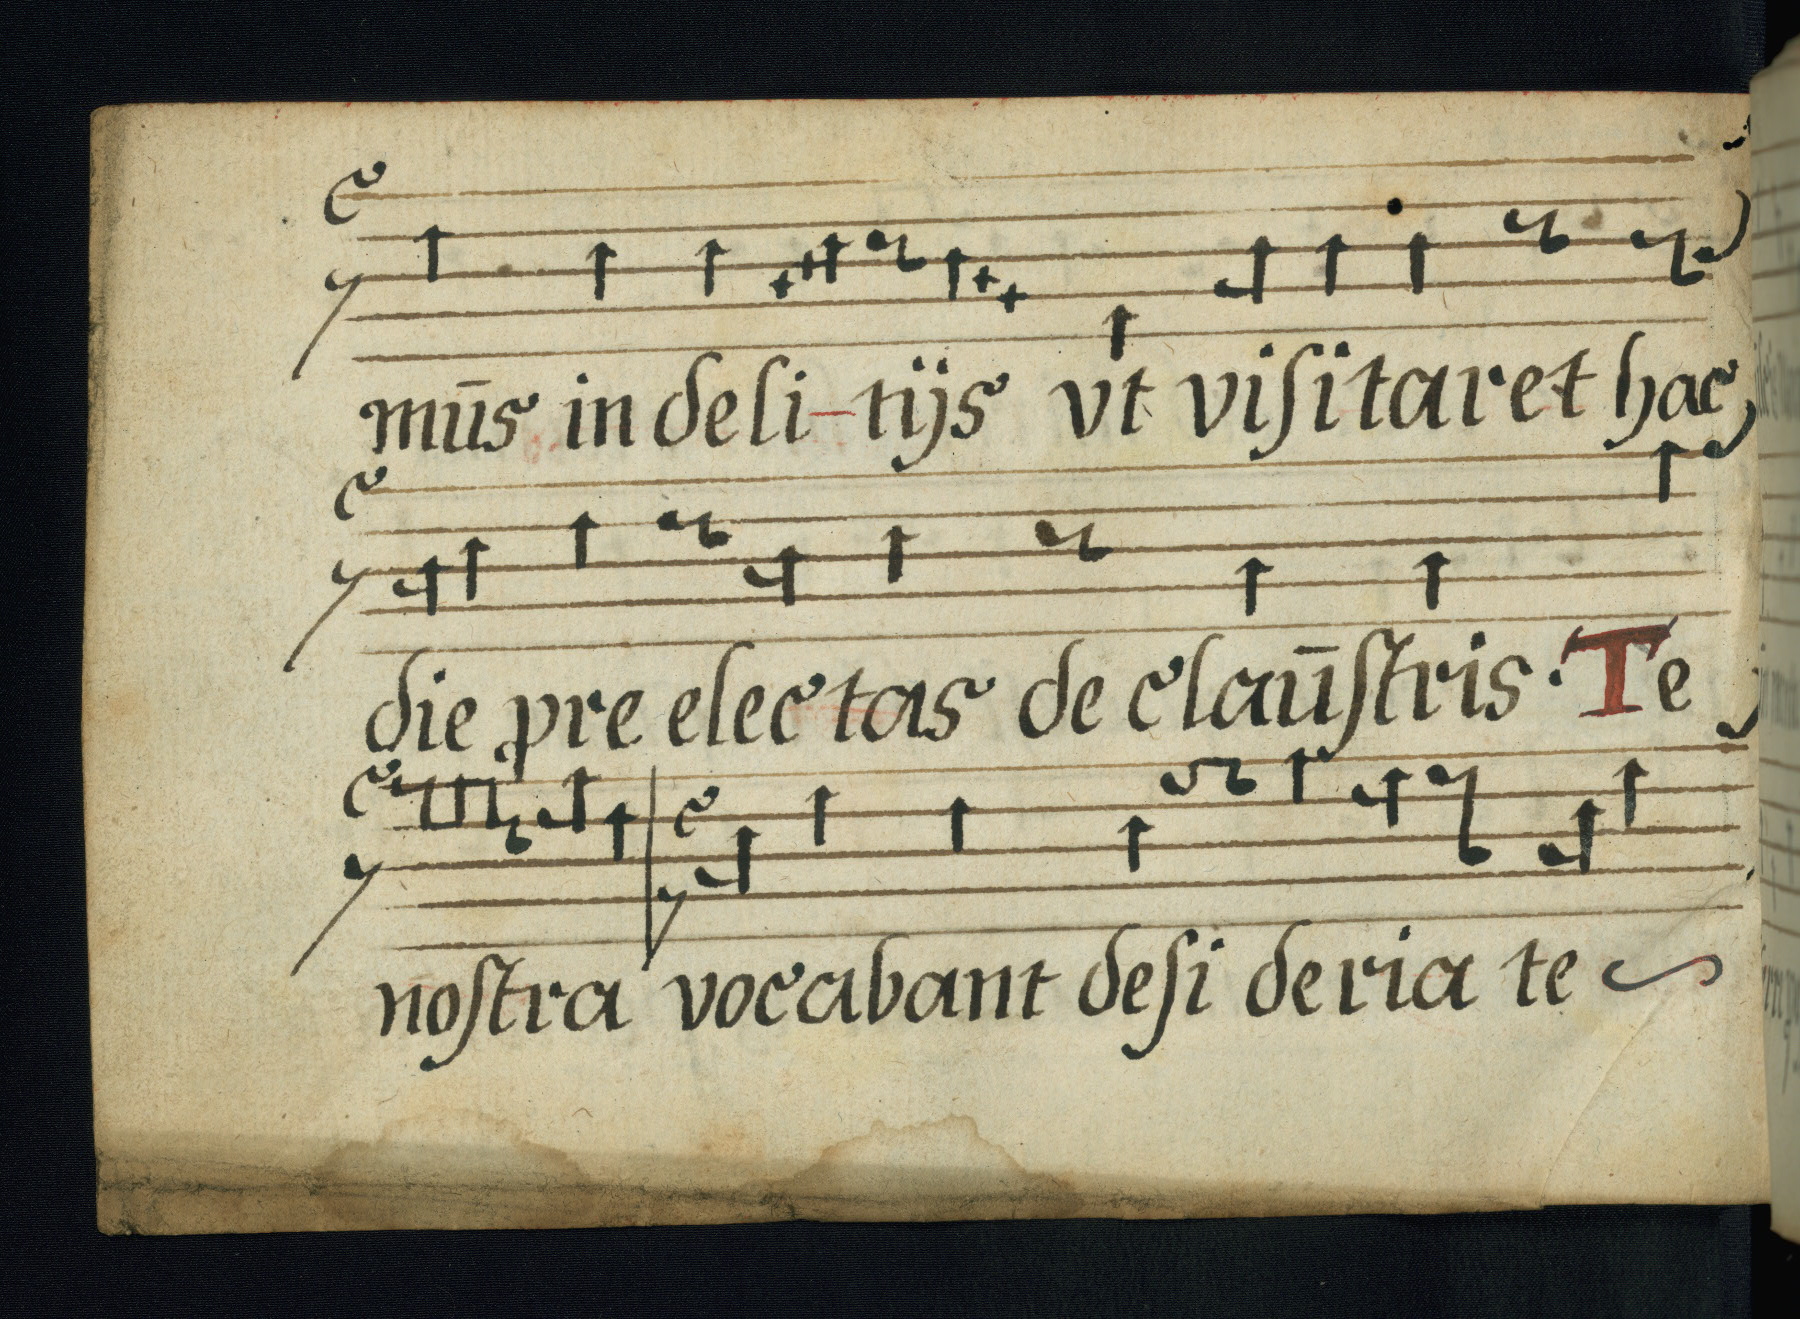 mūs in deli-tijs vt viſitaret hac
die pre electas de claūſtris. Te
noſtra vocabant deſi deria te